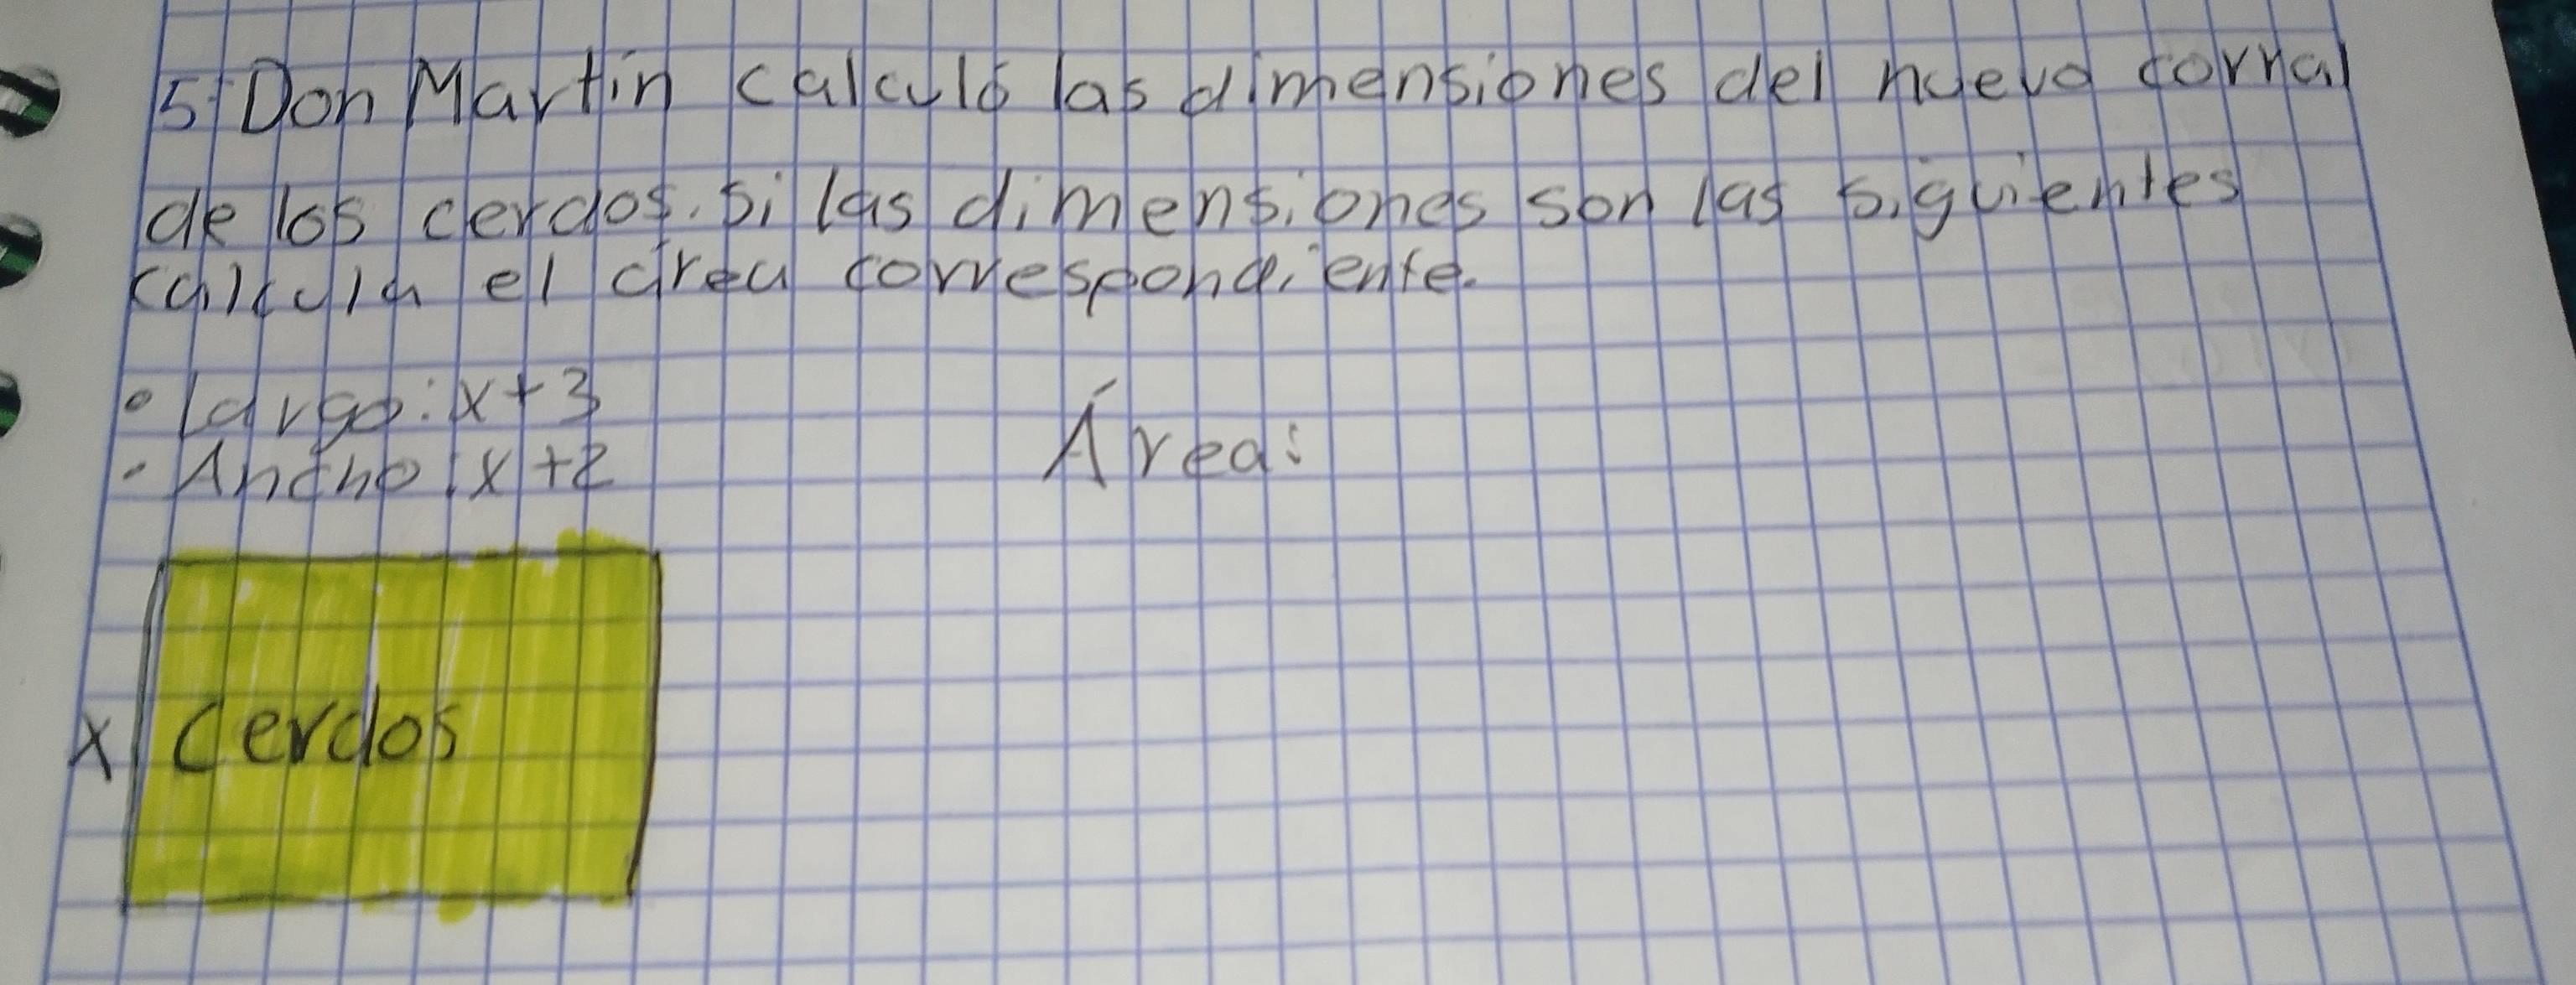 5- Don Martín calculó las dimensiones del nuevo corral
de los cerdos. si las dimensiones son las siguientes
calcula el área correspondiente.
• largo: x+3
Área:
• Ancho: x+2
x cerdos